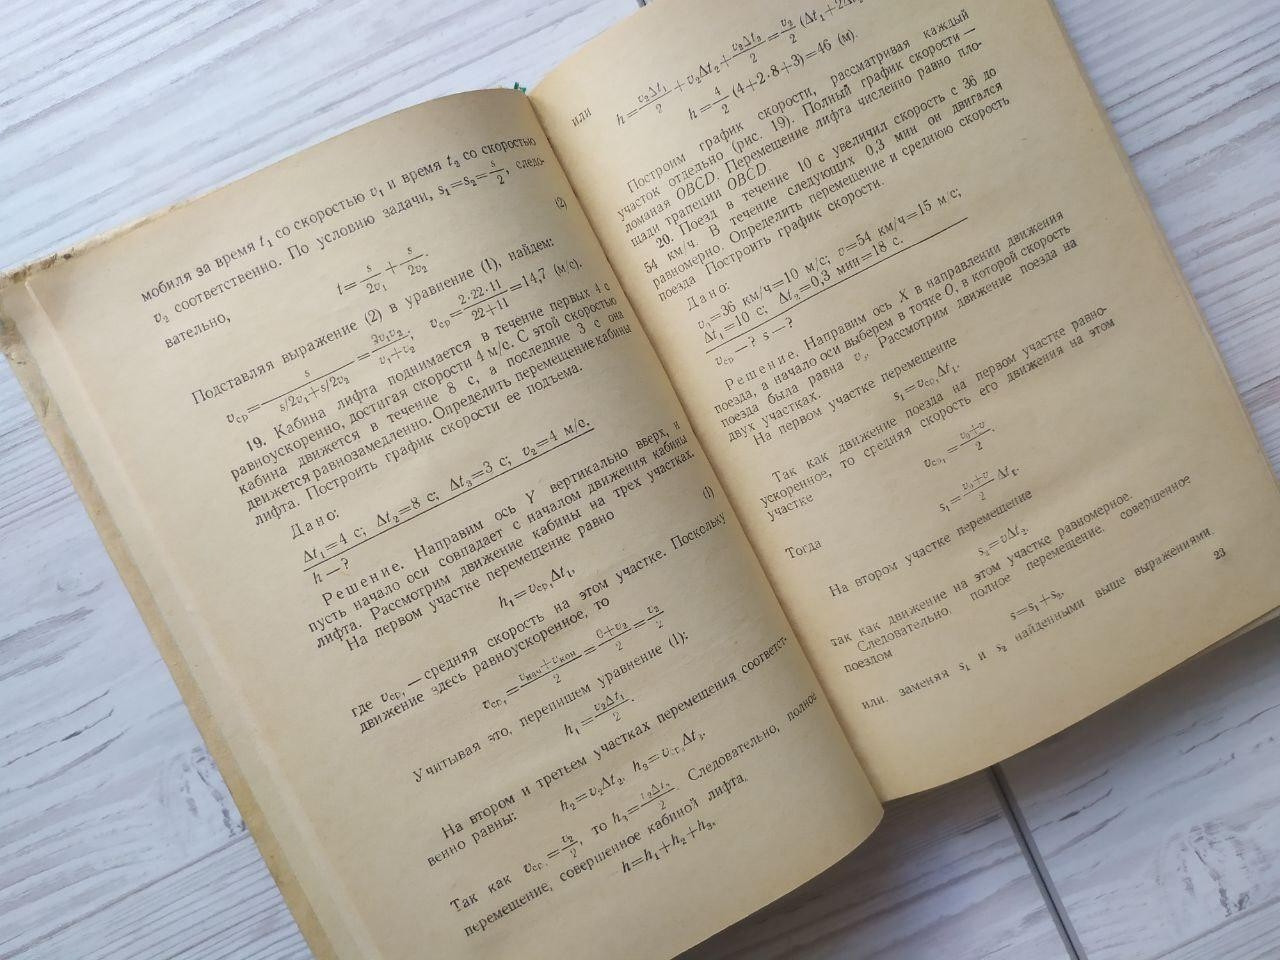 мобиля за время t₁ со скоростью v₁ и время t₂ со скоростью
v₂ соответственно. По условию задачи, s₁=s₂=s/2, следо-
вательно,
t=s/2v₁+s/2v₂. (2)
Подставляя выражение (2) в уравнение (1), найдем:
v_ср=s/(s/2v₁+s/2v₂)=2v₁v₂/(v₁+v₂); v_ср=2·22·11/(22+11)=14,7 (м/с).
19. Кабина лифта поднимается в течение первых 4 с
равноускоренно, достигая скорости 4 м/с. С этой скоростью
кабина движется в течение 8 с, а последние 3 с она
движется равнозамедленно. Определить перемещение кабины
лифта. Построить график скорости ее подъема.
Дано:
Δt₁=4 с; Δt₂=8 с; Δt₃=3 с; v₂=4 м/с.
h—?
Решение. Направим ось Y вертикально вверх, и
пусть начало оси совпадает с началом движения кабины
лифта. Рассмотрим движение кабины на трех участках.
На первом участке перемещение равно
h₁=v_ср₁Δt₁, (1)
где v_ср₁—средняя скорость на этом участке. Поскольку
движение здесь равноускоренное, то
v_ср₁=(v_нач+v_кон)/2=(0+v₂)/2=v₂/2
Учитывая это, перепишем уравнение (1):
h₁=v₂Δt₁/2.
На втором и третьем участках перемещения соответст-
венно равны:
h₂=v₂Δt₂, h₃=v_ср₃Δt₃.
Так как v_ср₃=v₂/2, то h₃=v₂Δt₃/2. Следовательно, полное
перемещение, совершенное кабиной лифта,
h=h₁+h₂+h₃,
или
h=v₂Δt₁/2+v₂Δt₂+v₂Δt₃/2=v₂/2(Δt₁+2Δt
h=4/2(4+2·8+3)=46 (м).
Построим график скорости, рассматривая каждый
участок отдельно (рис. 19). Полный график скорости—
ломаная OBCD. Перемещение лифта численно равно пло-
щади трапеции OBCD.
20. Поезд в течение 10 с увеличил скорость с 36 до
54 км/ч. В течение следующих 0,3 мин он двигался
равномерно. Определить перемещение и среднюю скорость
поезда Построить график скорости.
Дано:
v₀=36 км/ч=10 м/с; v=54 км/ч=15 м/с;
Δt₁=10 с; Δt₂=0,3 мин=18 с.
v_ср—? s—?
Решение. Направим ось X в направлении движения
поезда, а начало оси выберем в точке O, в которой скорость
поезда была равна v₀. Рассмотрим движение поезда на
двух участках.
На первом участке перемещение
s₁=v_ср₁Δt₁.
Так как движение поезда на первом участке равно-
ускоренное, то средняя скорость его движения на этом
участке
v_ср₁=(v₀+v)/2.
Тогда
s₁=(v₀+v)/2 Δt₁.
На втором участке перемещение
s₂=vΔt₂,
так как движение на этом участке равномерное.
Следовательно, полное перемещение, совершенное
поездом
s=s₁+s₂,
или, заменяя s₁ и s₂ найденными выше выражениями,
23